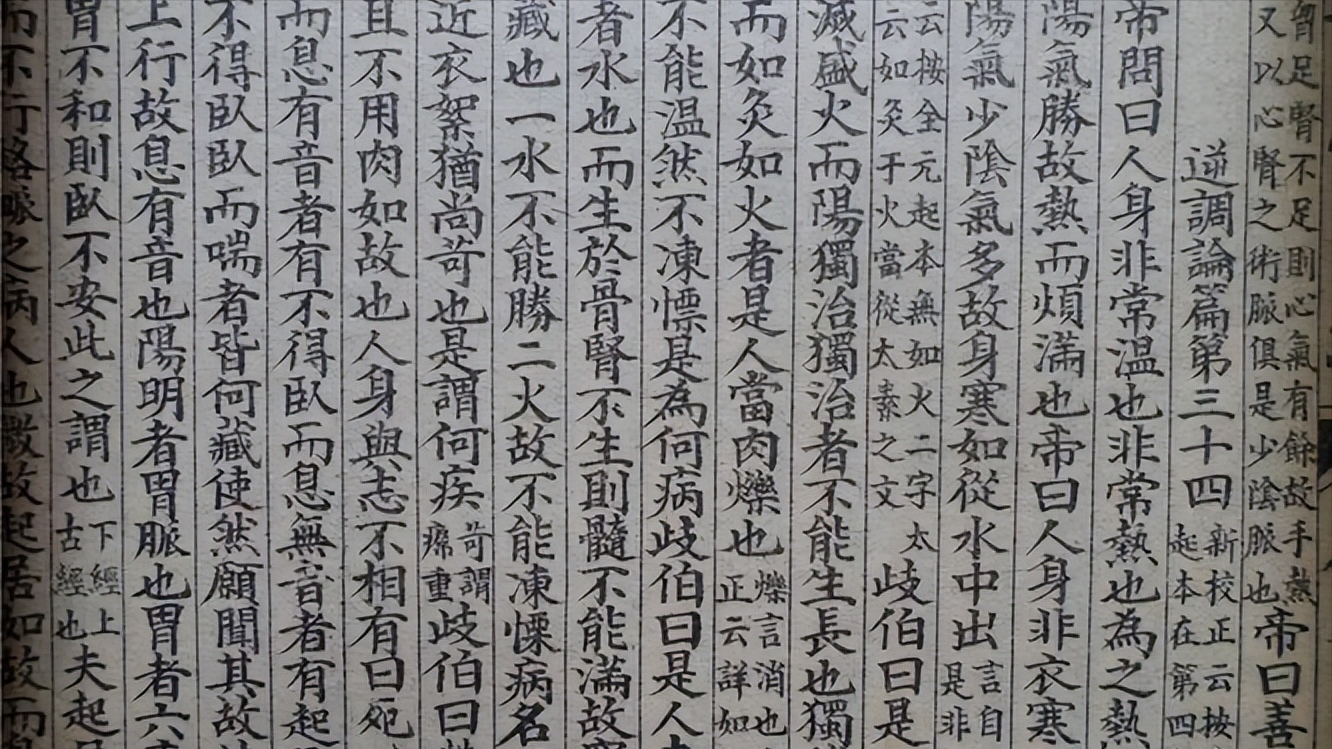 足腎不足則心氣有餘故手熱
又以心腎之術脈俱是少陰脈也
帝曰善
逆調論篇第三十四
新校正云按
起本在第四
帝問曰人身非常温也非常熱也為之熱
陽氣勝故熱而煩滿也帝曰人身非衣寒
陽氣少陰氣多故身寒如從水中出
言自
是非
云按全元起本無如火二字太
云如灸于火當從太素之文
歧伯曰是
滅盛火而陽獨治獨治者不能生長也獨
而如灸如火者是人當肉爍也
爍言消也
正云詳如
不能温然不凍慓是為何病歧伯曰是人
者水也而生於骨腎不生則髓不能滿故
藏也一水不能勝二火故不能凍慄病名
近衣絮猶尚苛也是謂何疾
苛謂
𤸷重
歧伯曰
且不用肉如故也人身與志不相有曰死
而息有音者有不得臥而息無音者有起
不得臥臥而喘者皆何藏使然願聞其故
上行故息有音也陽明者胃脈也胃者六
胃不和則臥不安此之謂也
下經上
古經也
夫起
而不行絡脈之病人也微故起居如故而